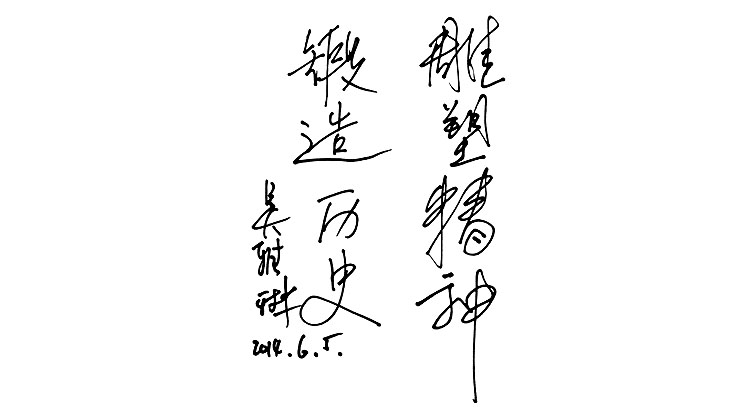 雕塑精神
锻造历史
吴雅琳
2014.6.5.